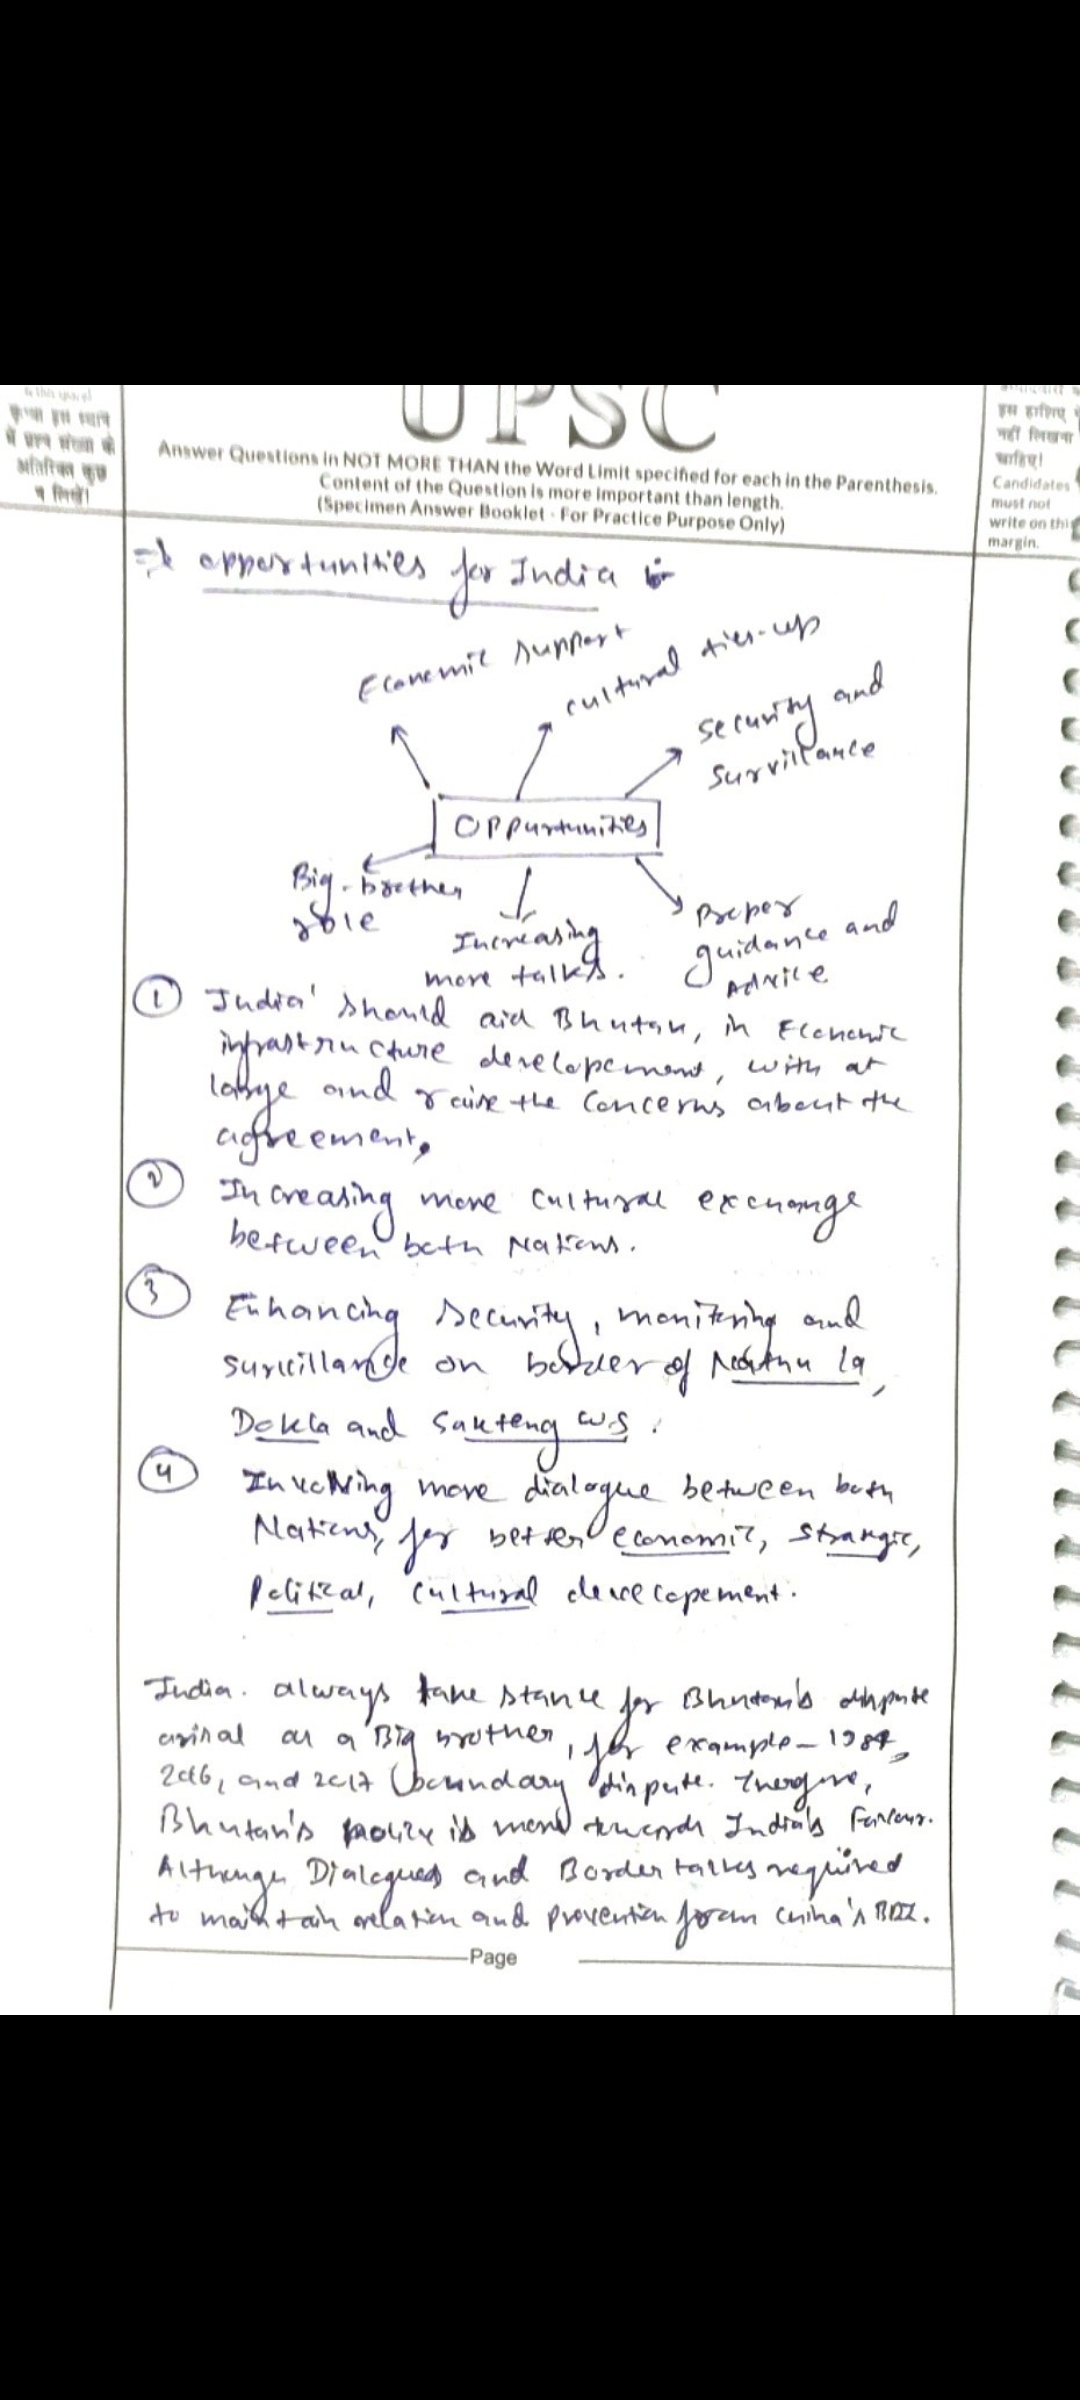 UPSC
कृपया इस स्थान
में प्रश्न संख्या के
अतिरिक्त कुछ
न लिखें।
Answer Questions in NOT MORE THAN the Word Limit specified for each in the Parenthesis.
Content of the Question is more important than length.
(Specimen Answer Booklet - For Practice Purpose Only)
इस हाशिए
नहीं लिखना
चाहिए।
Candidates
must not
write on this
margin.
⇒ opportunities for India :-
Economic support
cultural ties-up
security and
survillance
Oppurtunities
Big-brother
role
Increasing
more talks.
proper
guidance and
Advice
① India' should aid Bhutan, in Economic
infrastructure developement, with at
large and raise the concerns about the
agreement.
② Increasing more cultural exchange
between both Nations.
③ Enhancing security, monitoring and
survillance on border of Nathu la,
Dokla and Sakteng W.S.
④ Involving more dialogue between both
Nations, for better economic, stratgic,
Political, cultural developement.
India. always take stance for Bhutan's dispute
as a Big brother, for example - 1984,
2016, and 2017 boundary dispute. Therefore,
Bhutan's policy is more towards India's Favour.
Although Dialogues and Border talks required
to maintain relation and prevention from China's BRI.
Page